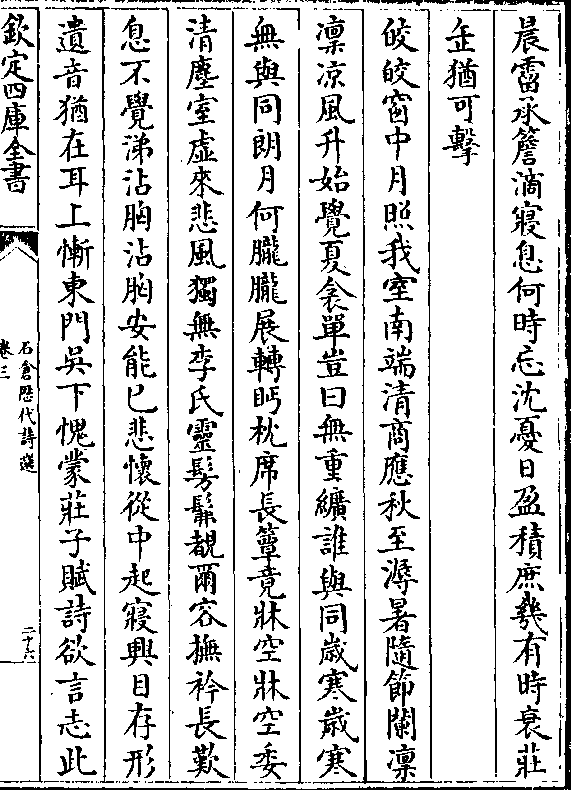 晨霤承簷滴寢息何時忘沈憂日盈積庶幾有時衰莊
缶猶可擊
皎皎窗中月照我室南端清商應秋至溽暑隨節闌凜
凜凉風升始覺夏衾單豈曰無重纊誰與同歲寒歲寒
無與同朗月何朧朧展轉眄枕席長簟竟牀空牀空委
清塵室虛來悲風獨無李氏靈髣髴覩爾容撫衿長歎
息不覺涕沾胸沾胸安能已悲懷從中起寢興目存形
遺音猶在耳上慚東門吳下愧蒙莊子賦詩欲言志此
欽定四庫全書
石倉歷代詩選
卷三
二十六